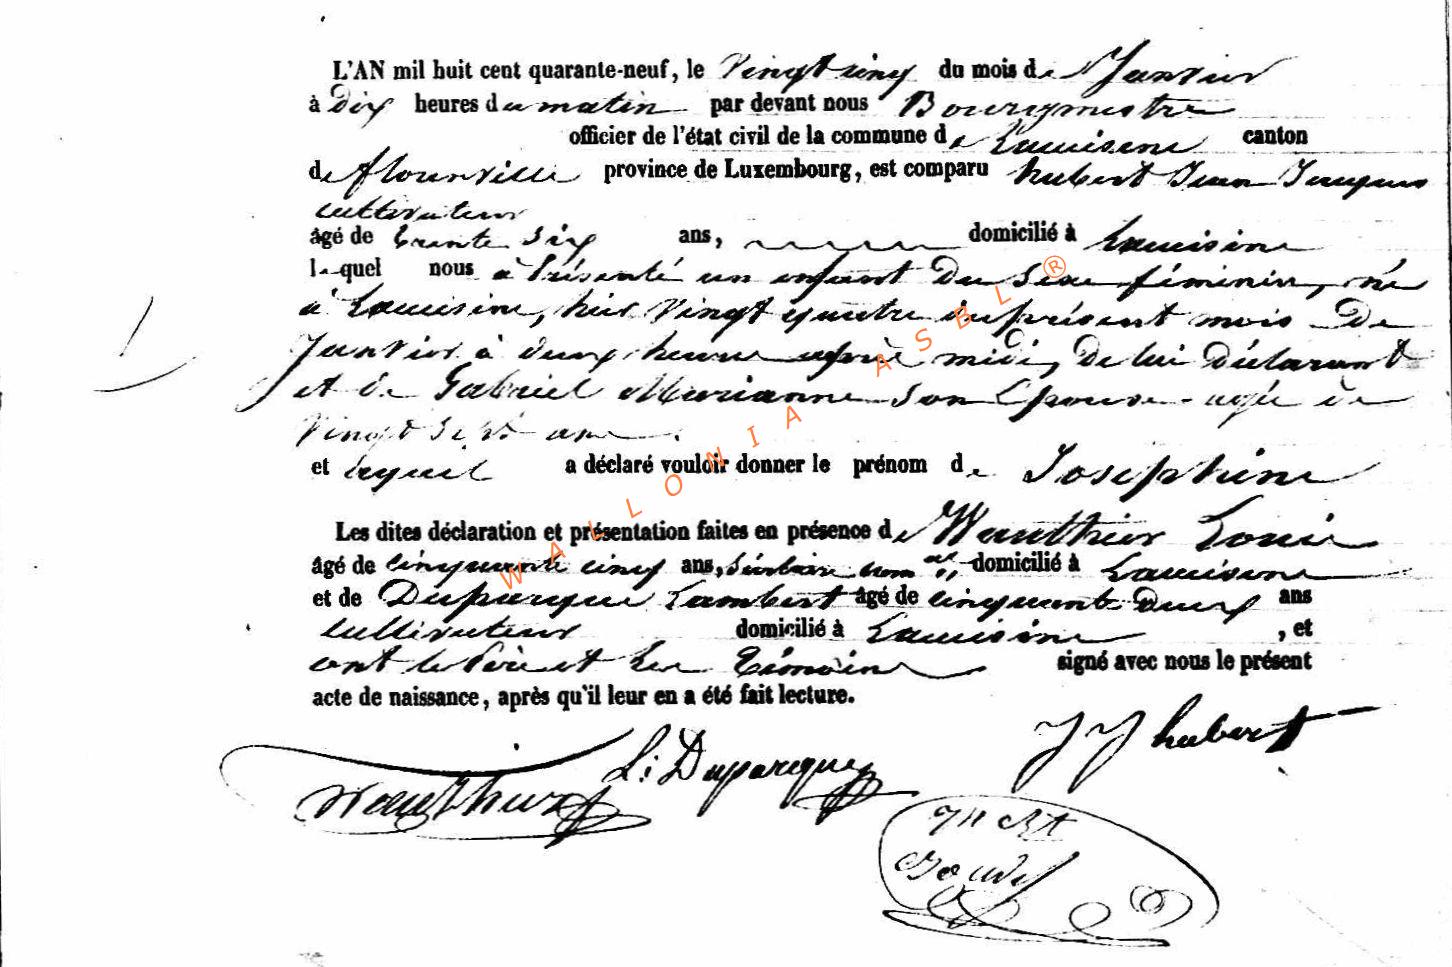 L'AN mil huit cent quarante-neuf, le Vingt cinq du mois de Janvier
à dix heures du matin par devant nous Bourgmestre
officier de l'état civil de la commune de Lacuisine canton
de florenville province de Luxembourg, est comparu hubert Jean Jacques
cultivateur
âgé de trente six ans, domicilié à Lacuisine
lequel nous à présenté un enfant du sexe féminin, né
à Lacuisine, hier vingt quatre du présent mois de
Janvier à deux heure après midi, de lui déclarant
et de Gabriel Marianne son Epouse agée de
Vingt sept ans.
et auquel a déclaré vouloir donner le prénom de Josephine
Les dites déclaration et présentation faites en présence de Wauthier Louis
âgé de cinquante cinq ans, domicilié à Lacuisine
et de Duparque Lambert âgé de cinquante deux ans
cultivateur domicilié à Lacuisine, et
ont le Père et les Témoins signé avec nous le présent
acte de naissance, après qu'il leur en a été fait lecture.
JJ hubert
L: Duparque
Wauthier
WALLONIA ASBL ®